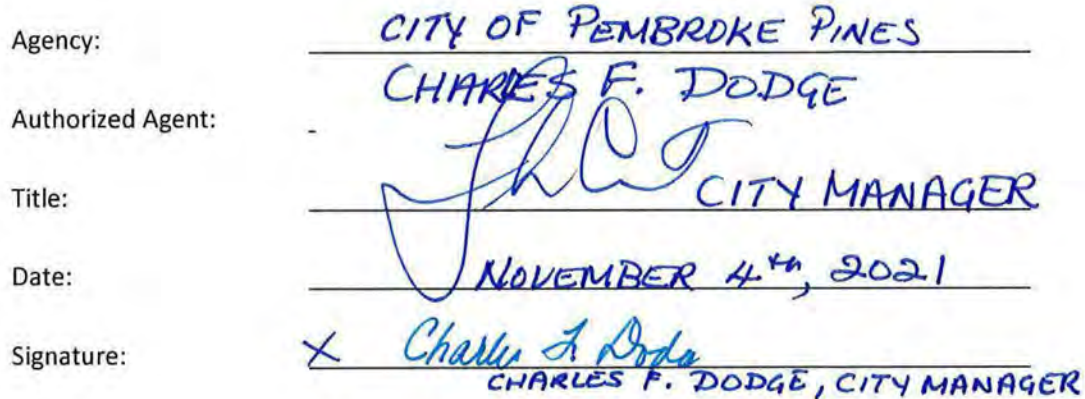 Agency: CITY OF PEMBROKE PINES
Authorized Agent: CHARLES F. DODGE
Title: CITY MANAGER
Date: NOVEMBER 4th, 2021
Signature: X Charles F Dodge
CHARLES F. DODGE, CITY MANAGER